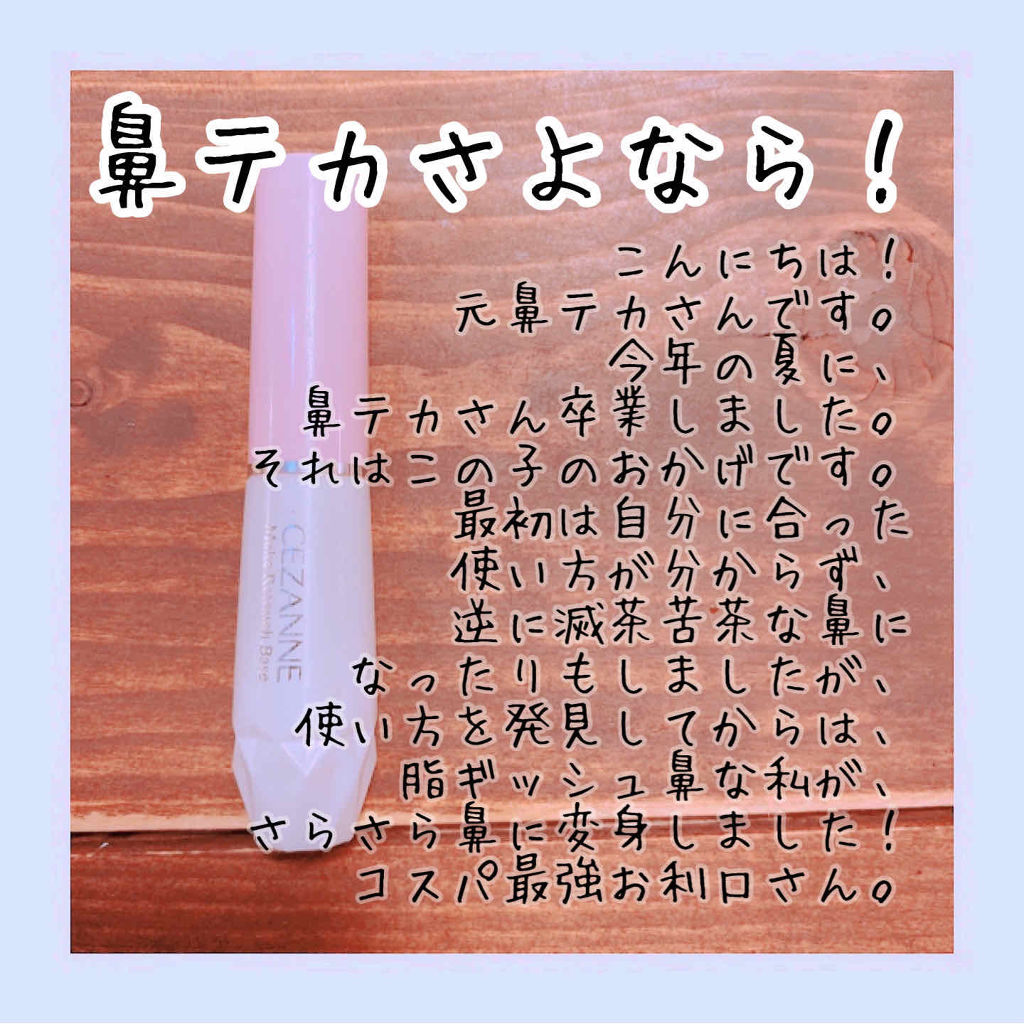 鼻テカさよなら！
こんにちは！
元鼻テカさんです。
今年の夏に、
鼻テカさん卒業しました。
それはこの子のおかげです。
最初は自分に合った
使い方が分からず、
逆に滅茶苦茶な鼻に
なったりもしましたが、
使い方を発見してからは、
脂ギッシュ鼻な私が、
さらさら鼻に変身しました！
コスパ最強お利口さん。
CEZANNE